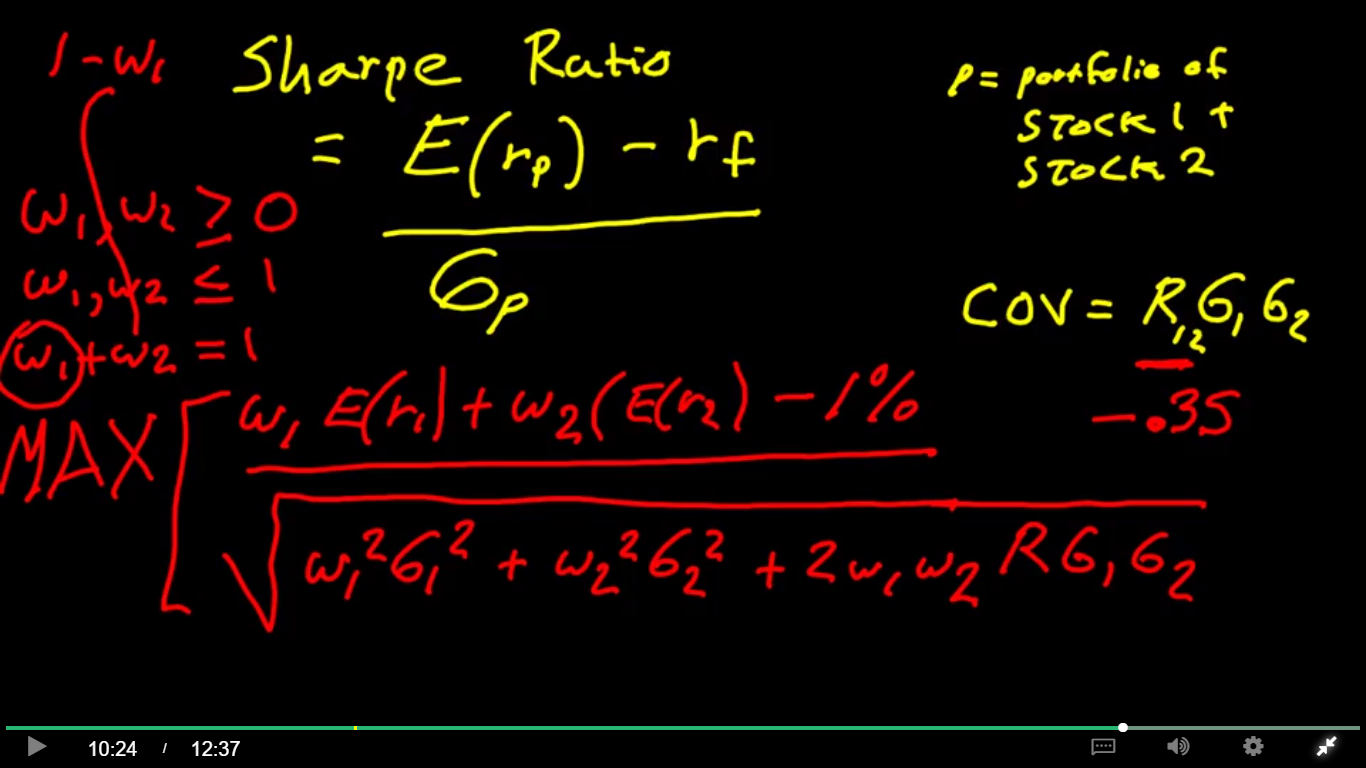 1-w₁
Sharpe Ratio
= E(rₚ) - r_f
σₚ
P = portfolio of
STOCK 1 +
STOCK 2
w₁, w₂ ≥ 0
w₁, w₂ ≤ 1
w₁ + w₂ = 1
COV = R₁₂σ₁σ₂
-.35
MAX [ w₁ E(r₁) + w₂ (E(r₂) - 1%
√ w₁²σ₁² + w₂²σ₂² + 2w₁w₂ Rσ₁σ₂
10:24 / 12:37